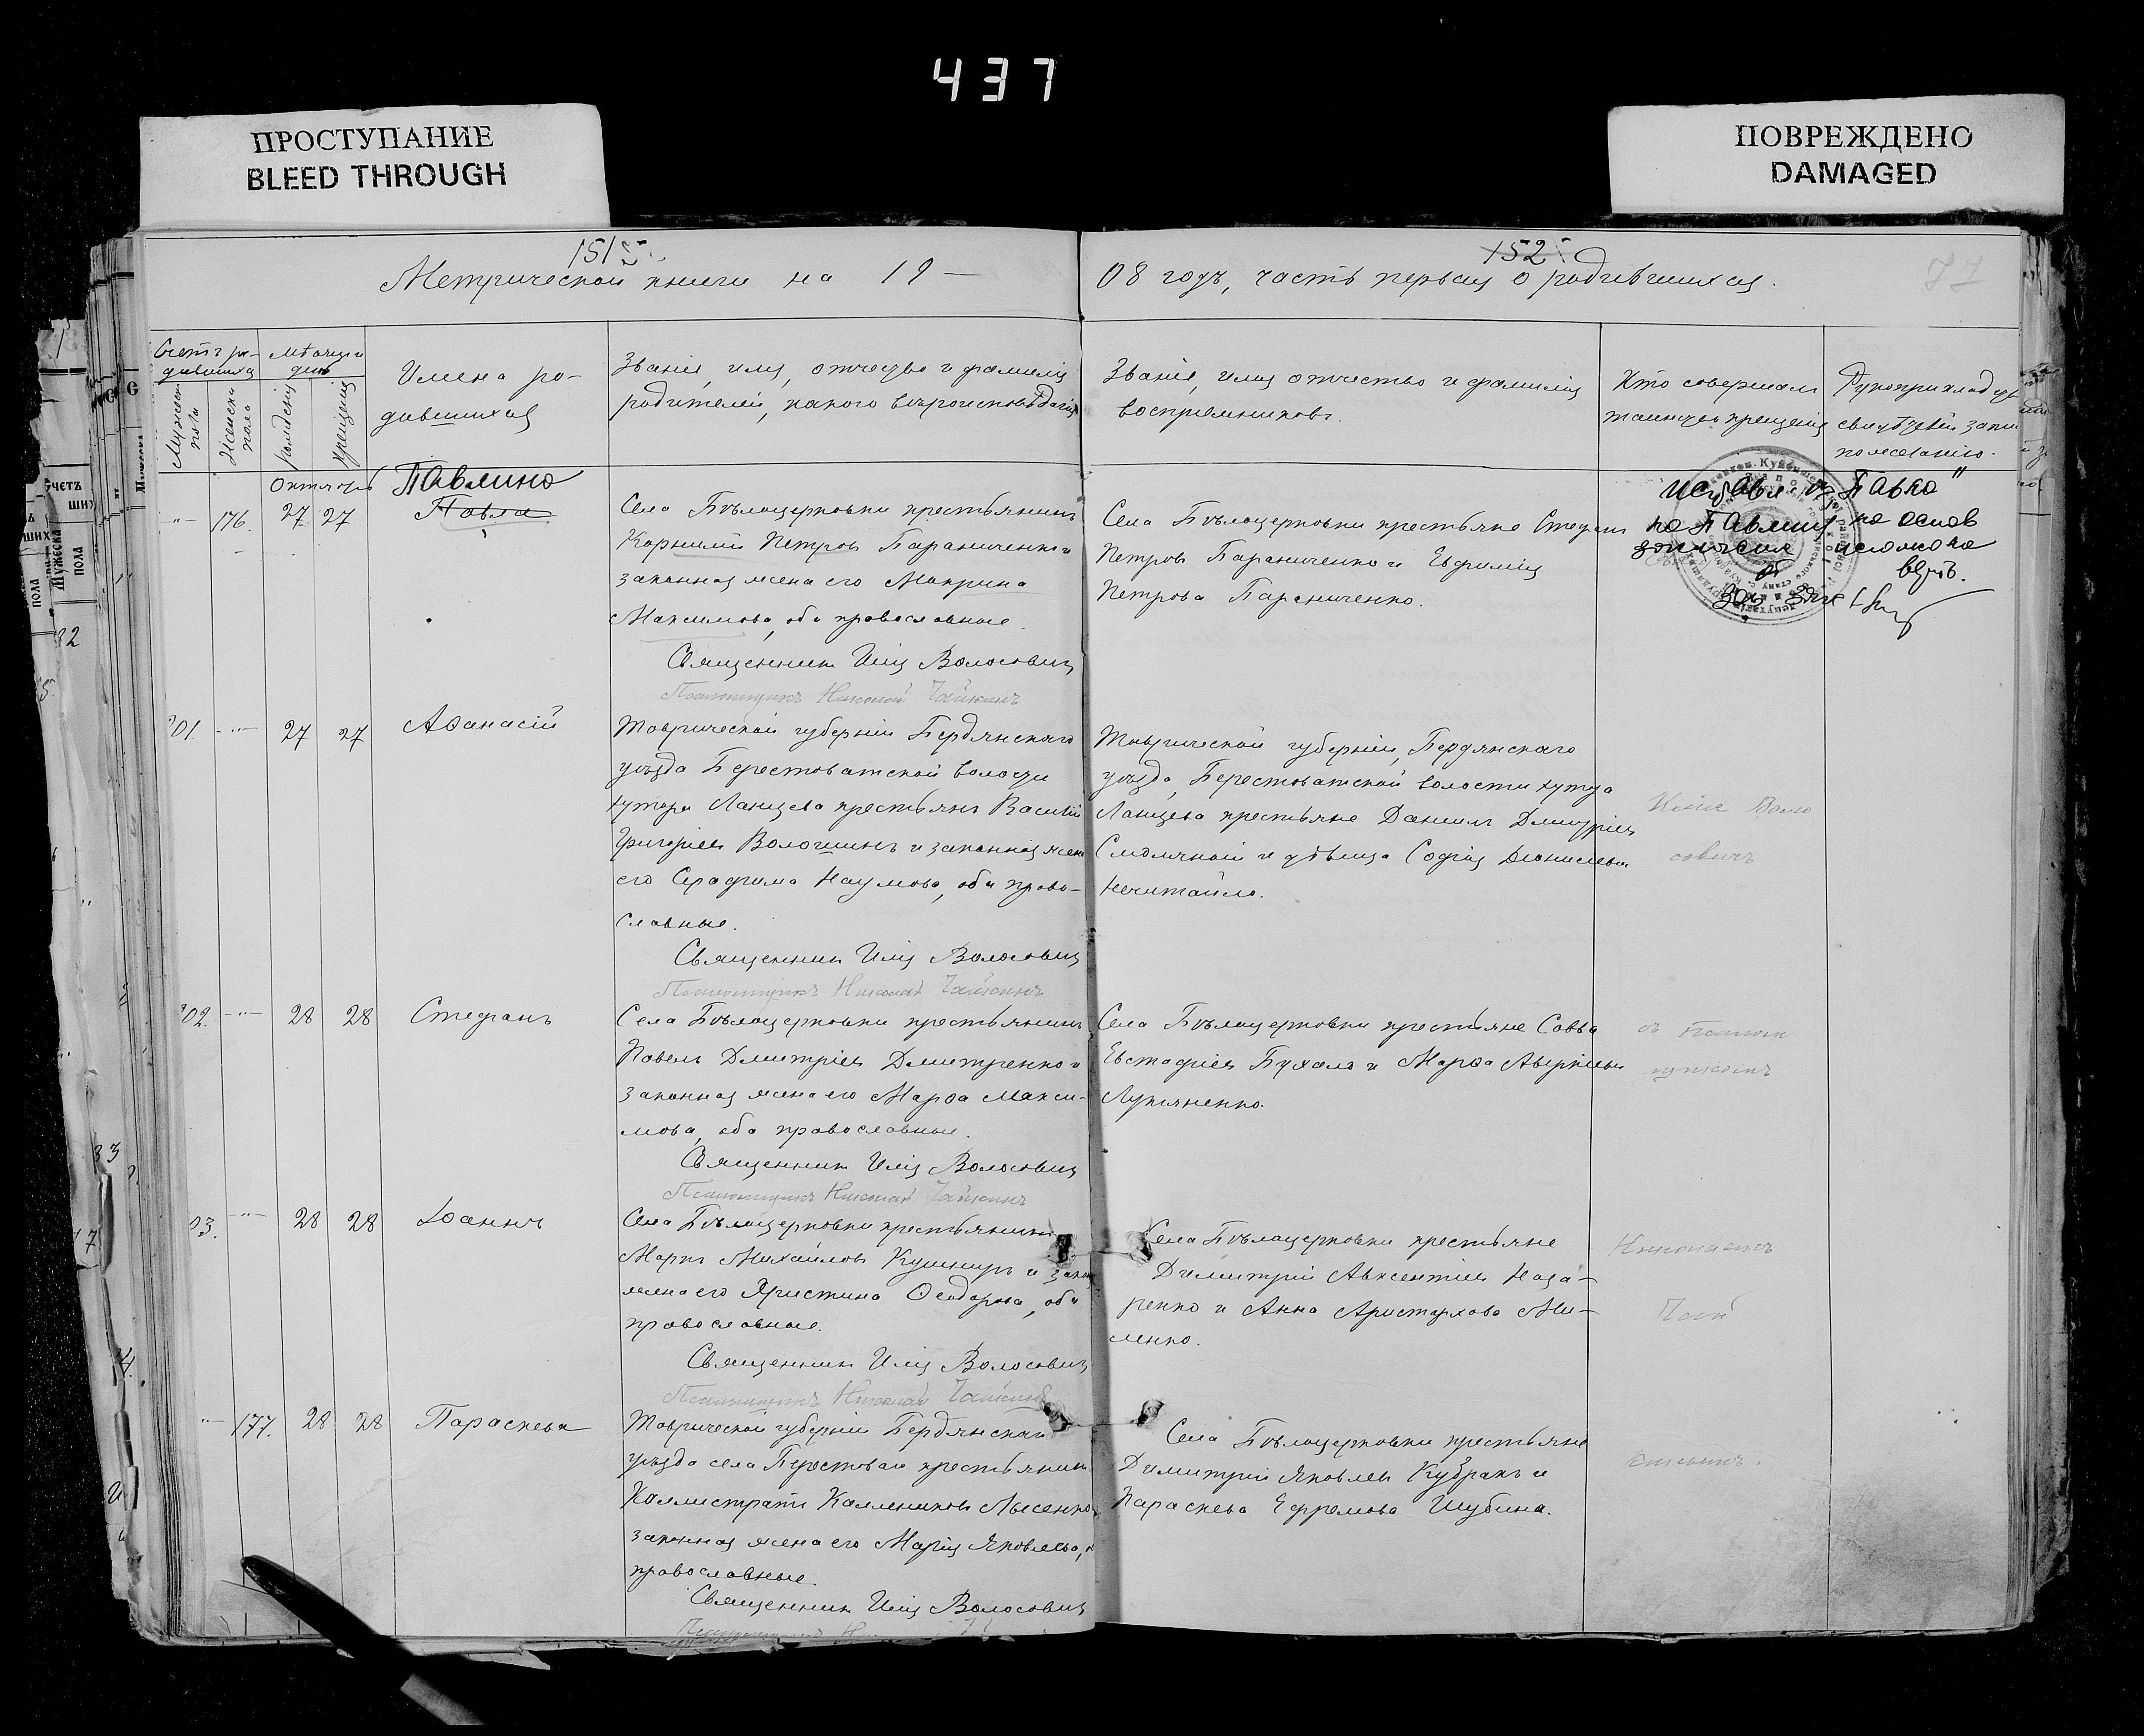 437
ПРОСТУПАНИЕ
BLEED THROUGH
ПОВРЕЖДЕНО
DAMAGED
151
Метрической книги на 19—
152
08 годъ, часть первая о родившихся.
Счетъ ро-
дившихся
Мужеска пола
Женска пола
Мѣсяцъ и
день
рожденія
крещенія
Имена ро-
дившихся
Званіе, имя, отчество и фамилія
родителей, какого вѣроисповѣданія
Званіе, имя отчество и фамилія
воспріемниковъ.
Кто совершалъ
таинство крещенія
Рукоприкладство
свидѣтелей записи
по желанію.
Октябрь
Павлина
176. 27 27
Павла
Села Бѣлоцерковки крестьянинъ
Корнилій Петровъ Параниченко и
законная жена его Макрина
Максимова, оба православные
Священникъ Илія Волосовичъ
Псаломщикъ Николай Чайкинъ
Села Бѣлоцерковки крестьяне Стефанъ
Петровъ Параниченко и Евфимія
Петрова Параниченко.
на Павлину на основ
201. 27 27 Аѳанасій
Таврической губерніи Бердянскаго
уѣзда Берестоватской волости
хутора Ланцева крестьянъ Василій
Григоріевъ Волошинъ и законная жена
его Серафима Наумова, оба право-
славные.
Священникъ Илія Волосовичъ
Псаломщикъ Николай Чайкинъ
Таврической губерніи, Бердянскаго
уѣзда, Берестоватской волости хутора
Ланцева крестьяне Даниилъ Дмитріевъ
Смолячной и дѣвица Софія Діонисіева
Нечитайло.
Иліе Воло
совичъ
202. 28 28 Стефанъ
Села Бѣлоцерковки крестьянинъ
Павелъ Дмитріевъ Дмитренко и
законная жена его Марѳа Макси-
мова, оба православные.
Священникъ Илія Волосовичъ
Псаломщикъ Николай Чайкинъ
Села Бѣлоцерковки крестьяне Савва
Евстафіевъ Бухало и Марѳа Аверкіева
Лукьяненко.
съ Псалом
щикомъ
203. 28 28 Іоаннъ
Села Бѣлоцерковки крестьянинъ
Маркъ Михайловъ Кушниръ и закон
жена его Христина Ѳеодорова, оба
православные.
Священникъ Илія Волосовичъ
Псаломщикъ Николай Чайкинъ
Села Бѣлоцерковки крестьяне
Димитрій Авксентіевъ Наза-
ренко и Анна Аристархова Ми-
ленко.
Николаемъ
Чай
177. 28 28 Параскева
Таврической губерніи Бердянскаго
уѣзда села Берестоваго крестьянинъ
Каллистратъ Каллениковъ Лысенко
законная жена его Марія Яковлева,
православные.
Священникъ Илія Волосовичъ
Села Бѣлоцерковки крестьяне
Димитрій Яковлевъ Кубракъ и
Параскева Ефремова Шубина.
кинымъ.